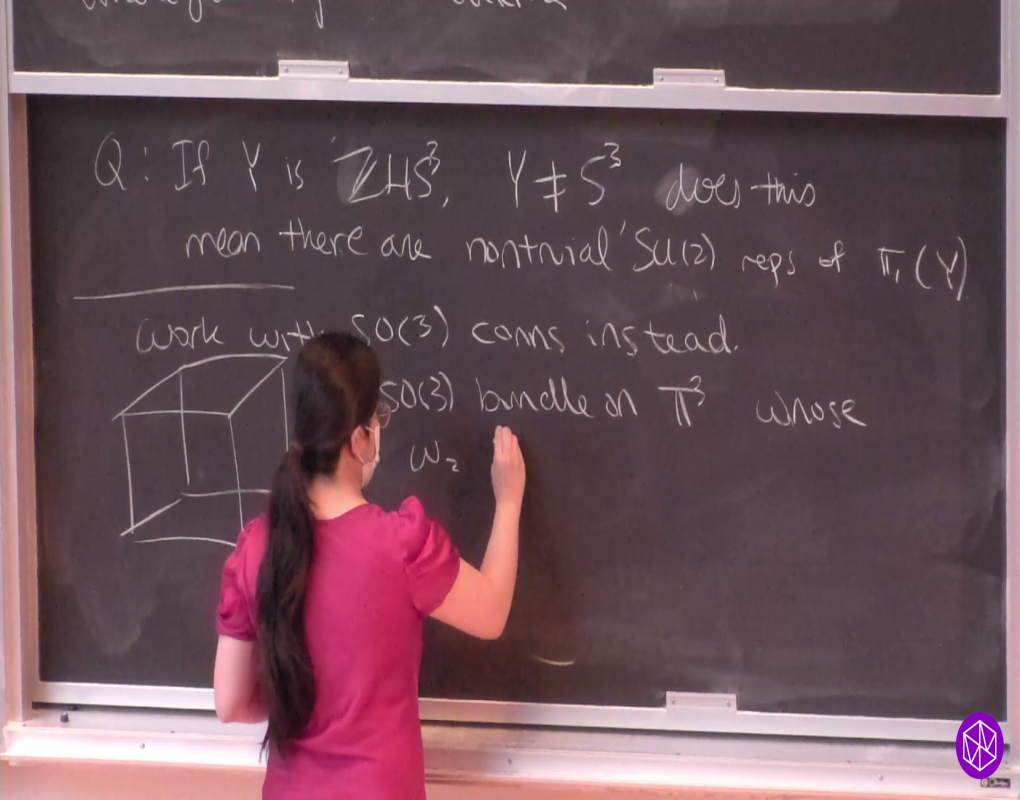 Q: If Y is ZHS³, Y ≠ S³ does this
mean there are nontrivial SU(2) reps of π₁(Y)
Work with SO(3) conns instead.
SO(3) bundle on T³ whose
w₂